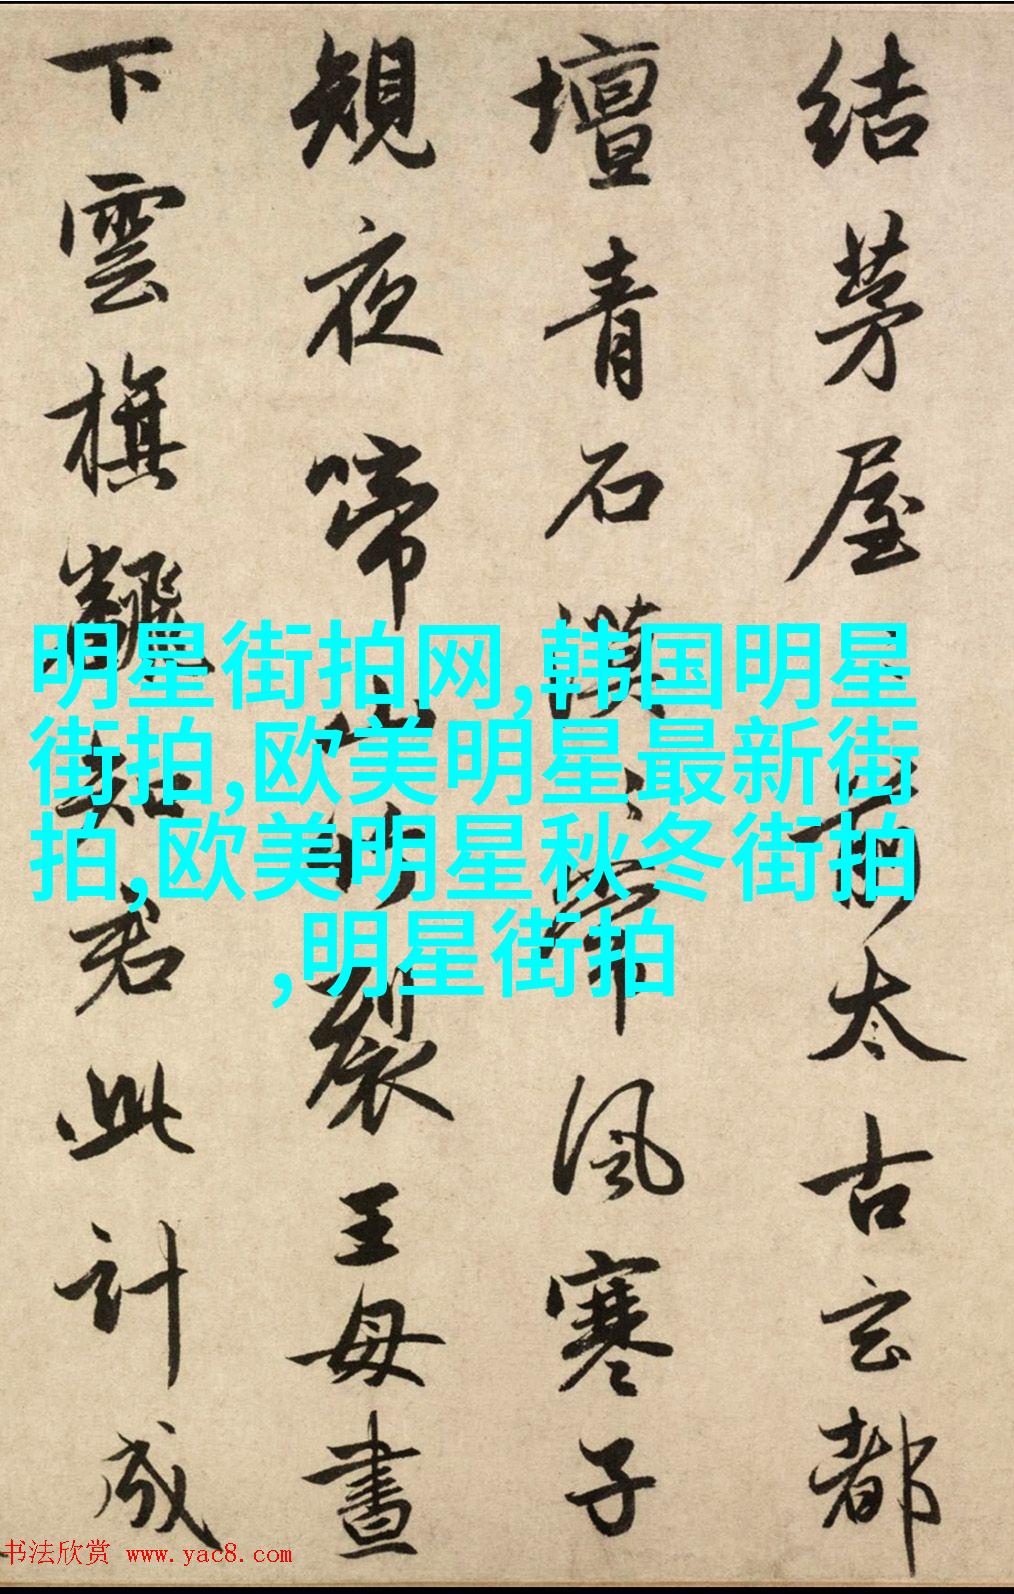 结茅屋前太古玄都
壇青石漠〻常風寒子
規夜啼山竹裂王母晝
下雲旗飜知君此計成
明星街拍网,韩国明星
街拍,欧美明星最新街
拍,欧美明星秋冬街拍
,明星街拍
书法欣赏 www.yac8.com